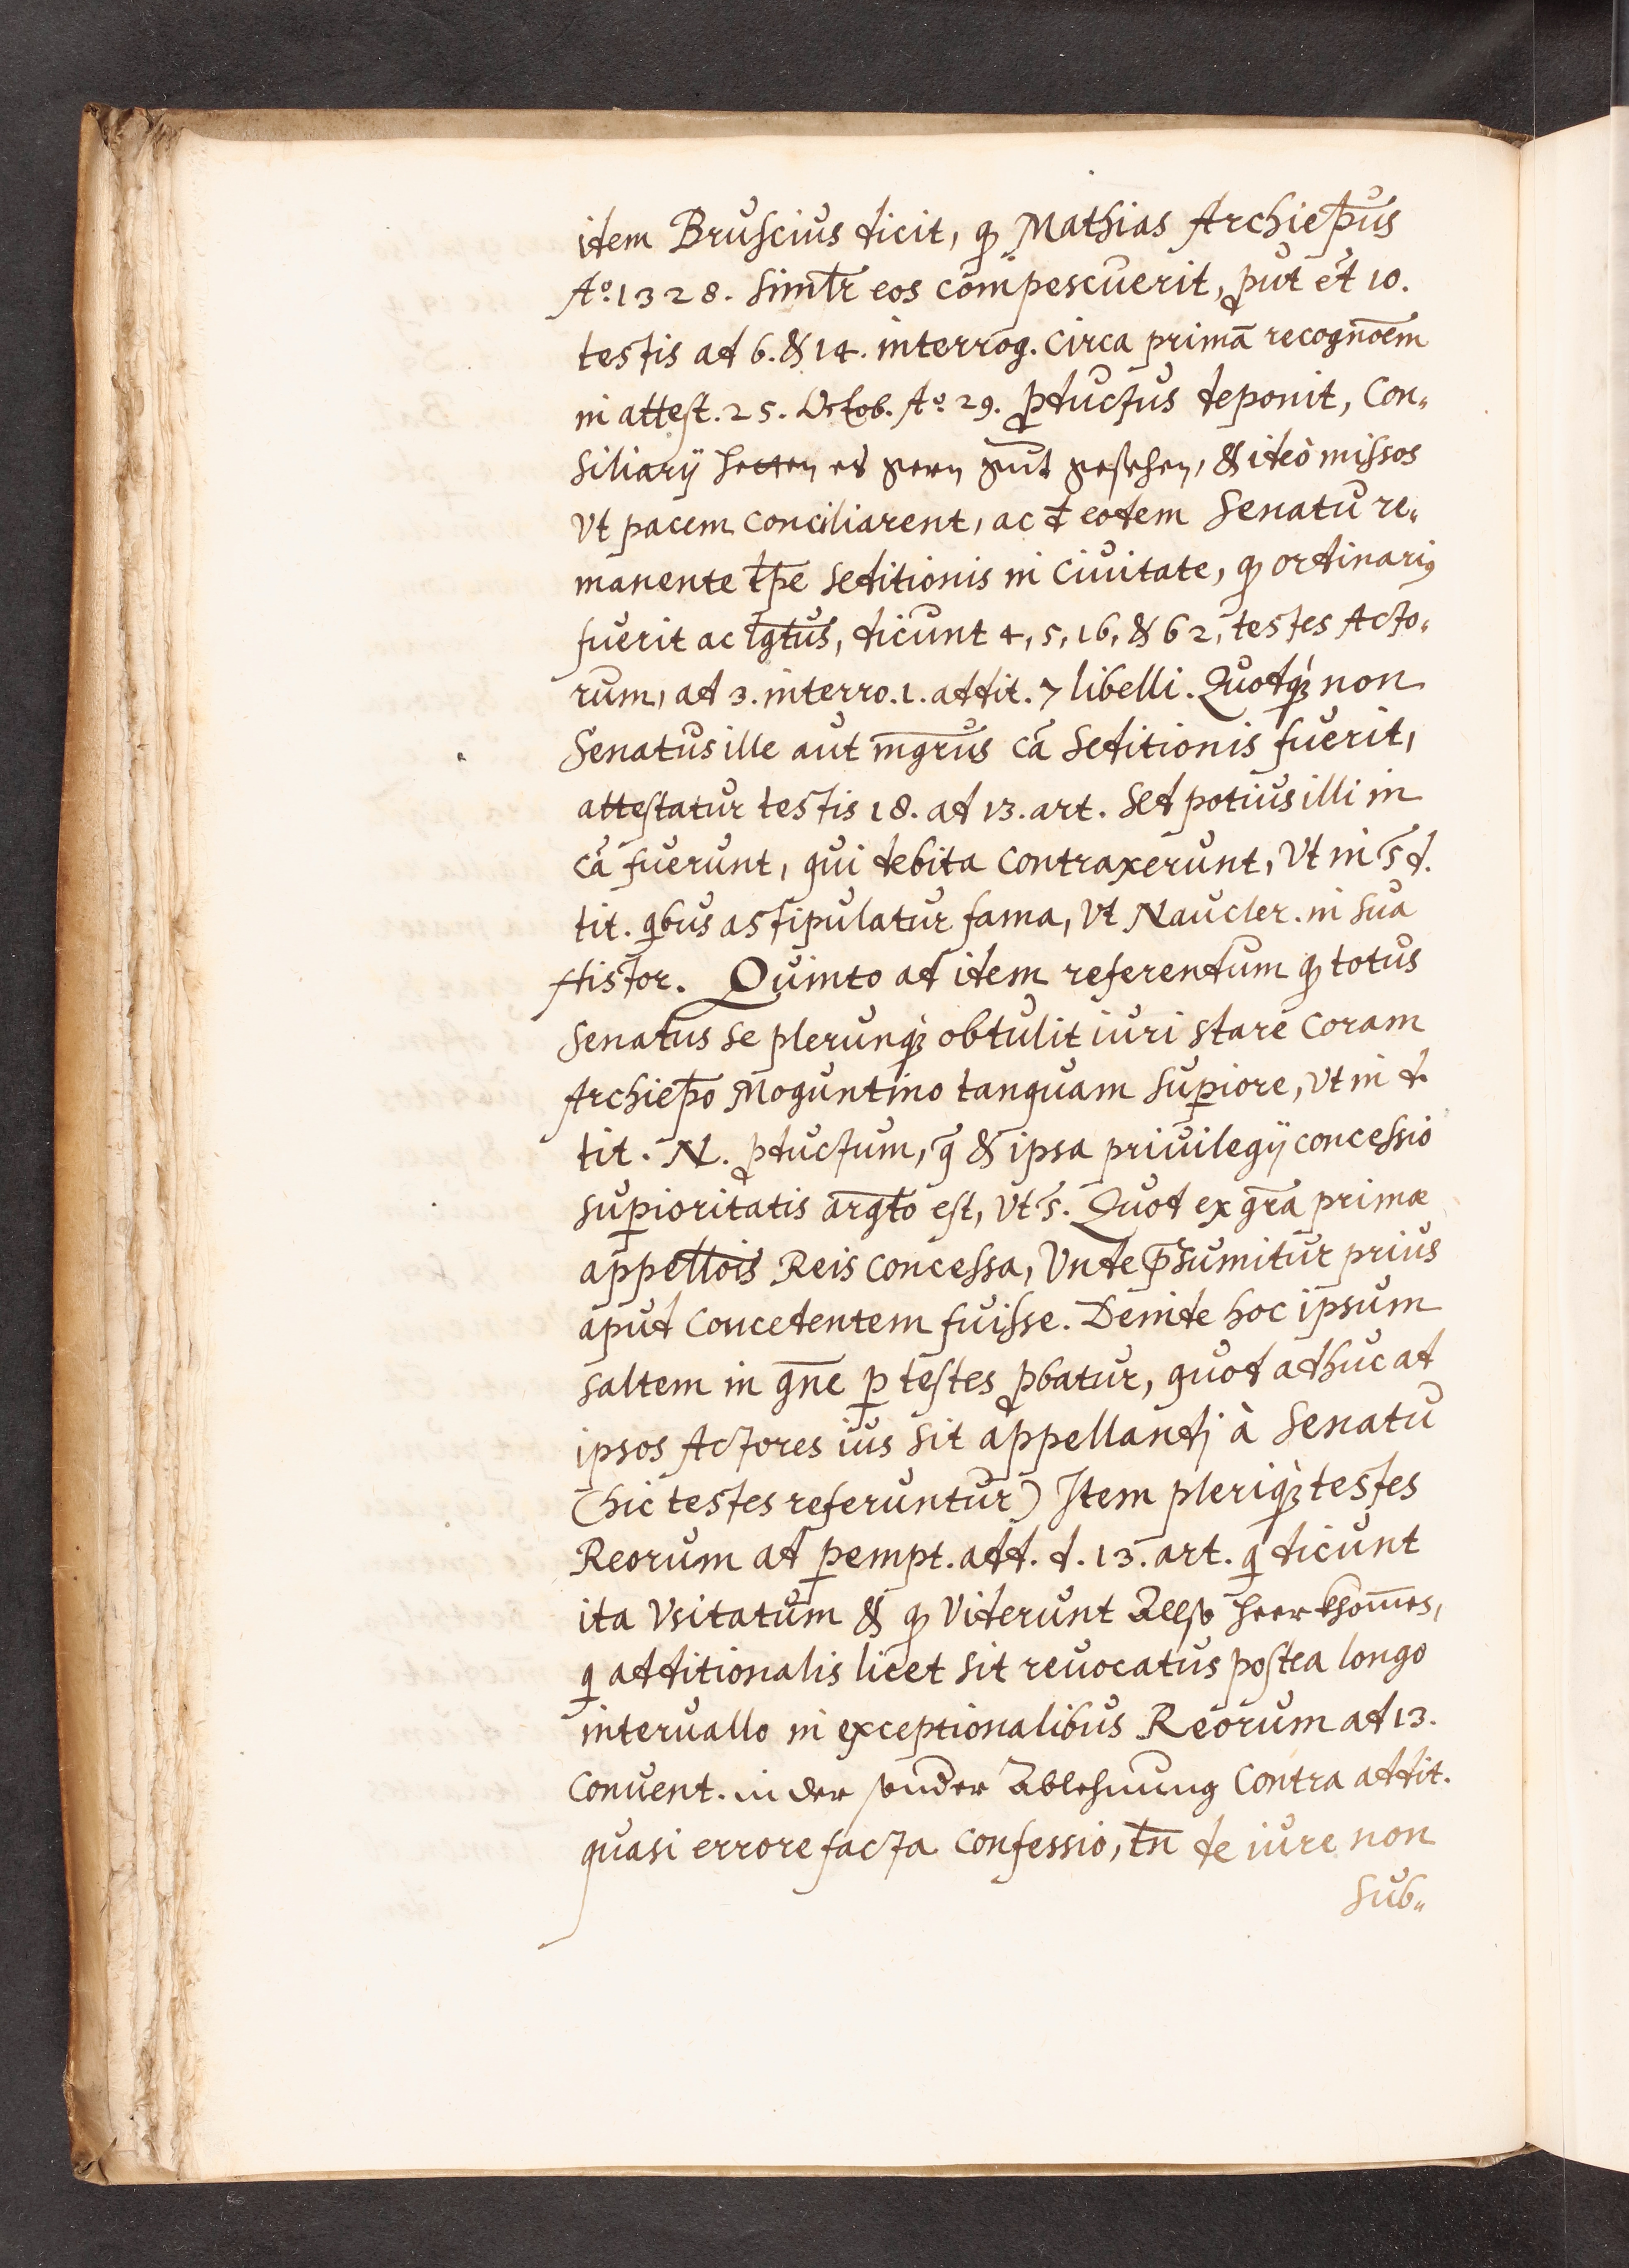 item Bruscius dicit, ꝙ Mathias Archiep̄us
Aº. 1328. simlr̄ eos com̄pescuerit, ꝓut et 10.
testis ad 6. & 14. interrog. circa primā recogno͞em
in attest. 25. Octob. Aº. 29. ꝓductus deponit, Con„
siliarÿ hetten es gern gut gesehen, & ideò missos
Vt pacem conciliarent, ac đ eodem Senatu re„
manente tp̄e seditionis in Ciuitate, ꝙ ordinariꝰ
fuerit ac lgt̄us, dicunt 4, 5, 16, & 62, testes Acto„
rum, ad 3. interro. 1. addit. 7 libelli. Quodq̀ꝫ non
Senatus ille aut mgr̄us cā seditionis fuerit,
attestatur testis 18. ad 13. art. Sed potius illi in
cā fuerunt, qui debita contraxerunt, Vt in s̄ d.
tit. qbus astipulatur fama, Vt Naucler. in sua
Histor. Quinto ad idem referendum ꝙ totus
Senatus se plerunq̀ꝫ obtulit iuri stare coram
Archiep̄o Moguntino tanquam suꝑiore, Vt in d.
tit. N. ꝓductum, q̄ & ipsa priuilegÿ concessio
suꝑioritatis argt̄o est, Vt s̄. Quod ex gr̄a primæ
appellōis Reis concessa, Vnde p̄sumitur prius
apud Concedentem fuisse. Deinde hoc ipsum
saltem in gn̄e ꝑ testes ꝓbatur, quod adhuc ad
ipsos Actores ius sit appellandj à Senatu
(hic testes referuntur) Item pleriq̀ꝫ testes
Reorum ad ꝑempt. add. d. 13. art. q dicunt
ita Vsitatum & ꝙ Viderunt Allso heerkhom̄es,
q additionalis licet sit reuocatus postea longo
interuallo in exceptionalibus Reorum ad 13.
Conuent. in der sonder Ablehnung Contra addit.
quasi errore facta confessio, tn̄ de iure non
Sub„